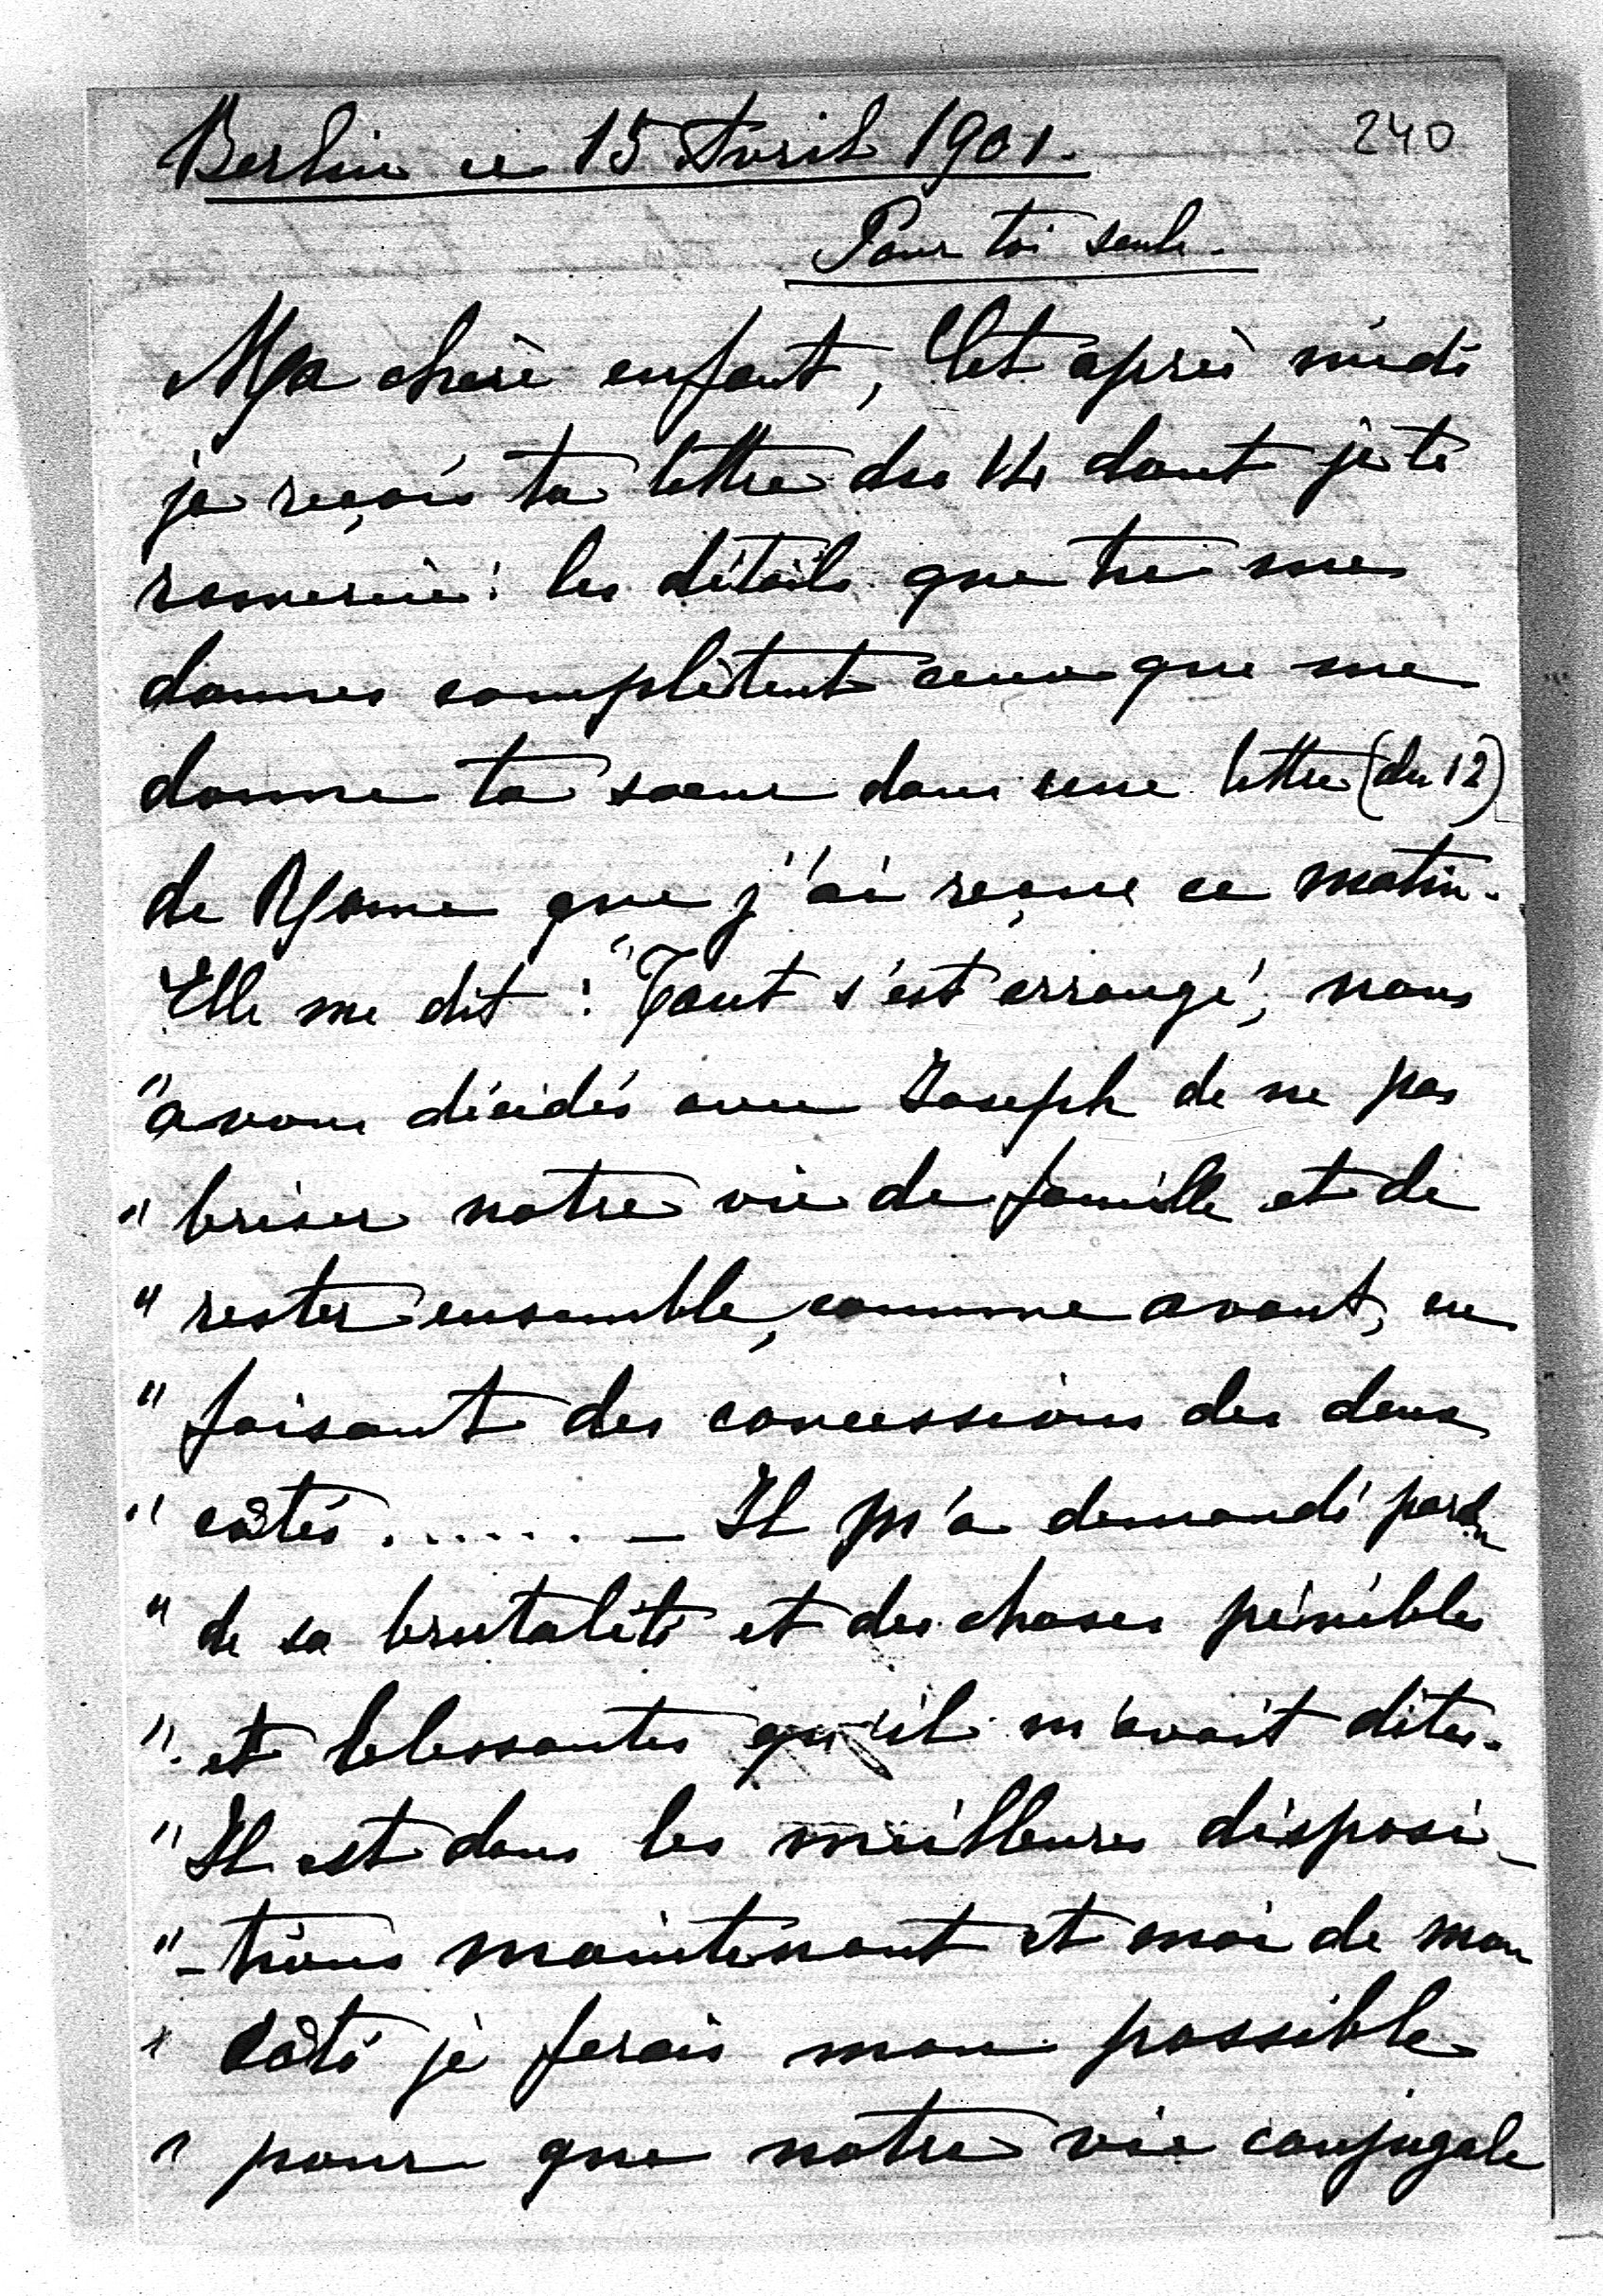 240
Berlin ce 15 Avril 1901.
Pour toi seule.
Ma chère enfant, Cet après midi
je reçois ta lettre du 14 dont je te
remercie: les détails que tu me
donnes complètent ceux que me
donne ta sœur dans une lettre (du 12)
de Rome que j'ai reçue ce matin.
Elle me dit : "Tout s'est arrangé, nous
"avons décidés avec Joseph de ne pas
" briser notre vie de famille et de
" rester ensemble, comme avant, en
" faisant des concessions des deux
" côtés ...... – Il m'a demandé pardon
" de sa brutalité et des choses pénibles
" et blessantes qu'il m'avait dites.
" Il est dans les meilleures disposi-
" -tions maintenant et moi de mon
" côté je ferais mon possible
" pour que notre vie conjugale